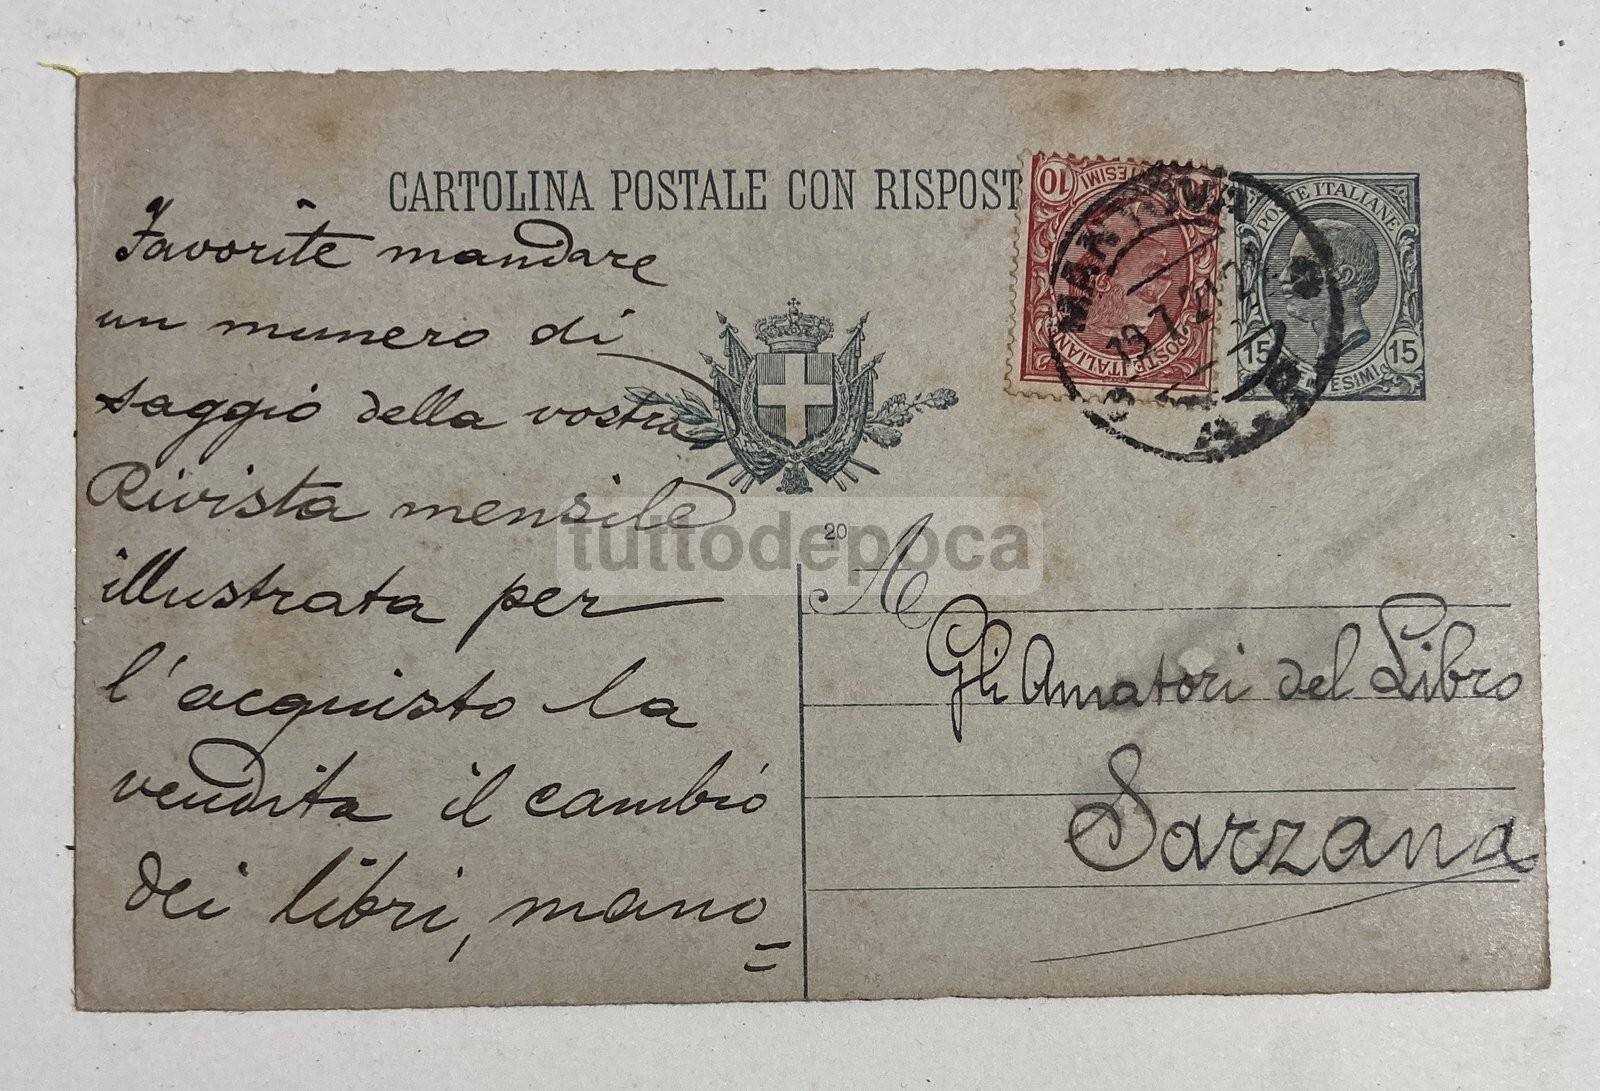 CARTOLINA POSTALE CON RISPOST
10
CENTESIMI
POSTE ITALIANE
MANTOVA
19.7.21
POSTE ITALIANE
15
15
CENTESIMI
Favorite mandare
un numero di
saggio della vostra
Rivista mensile
illustrata per
l'acquisto la
vendita il cambio
dei libri, mano=
20
tuttodepoca
A
Gli Amatori del Libro
Sarzana